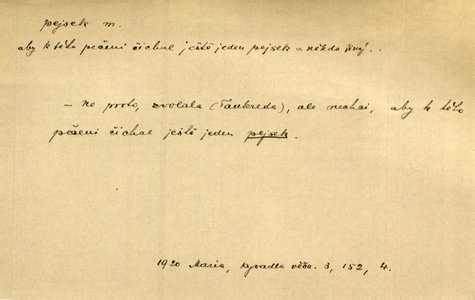 pejsek m.
aby k této pečeni čichal ještě jeden pejsek = někdo jiný..
– ne proto, zvolala (Tankreda), ale nechci, aby k této
pečeni čichal ještě jeden pejsek.
1920 Maria, Kyvadla věčn. 3, 152, 4.